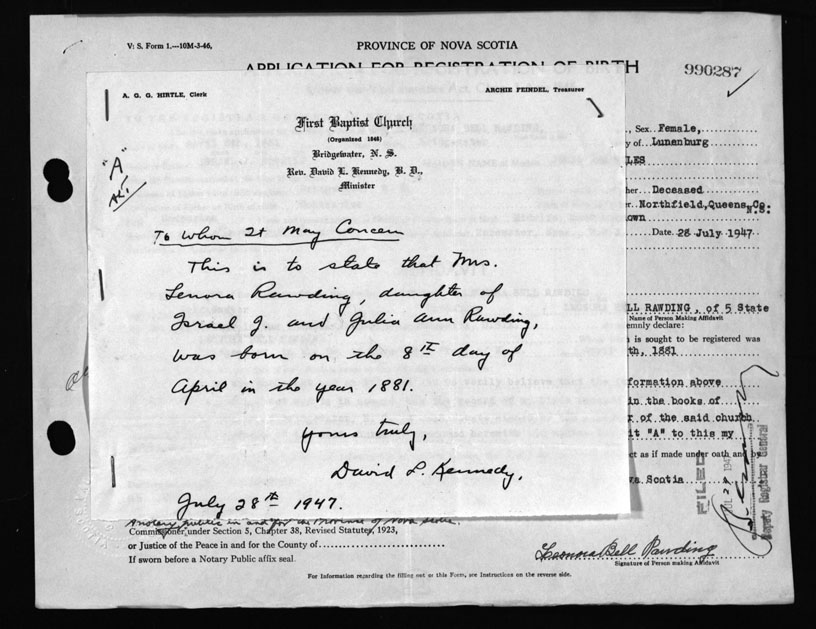 V. S. Form 1.---10M-3-46,
PROVINCE OF NOVA SCOTIA
APPLICATION FOR REGISTRATION OF BIRTH
990287
A. G. G. HIRTLE, Clerk
ARCHIE FEINDEL, Treasurer
First Baptist Church
(Organized 1848)
Bridgewater, N. S.
Rev. David L. Kennedy, B. D.,
Minister
"A"
To Whom It May Concern
This is to state that Mrs.
Lenora Rawding, daughter of
Israel J. and Julia Ann Rawding,
was born on the 8TH day of
April in the year 1881.
yours truly,
David L. Kennedy.
July 28th 1947.
, Sex Female,
y of Lunenburg
LES
her Deceased
Northfield, Queens, Co.
N.S.
own
Date 28 July 1947
LL RAWDING, of 5 State
Name of Person Making Affidavit
emnly declare:
is sought to be registered was
th, 1881
formation above
in the books of
r of the said church
it "A" to this my
ct as if made under oath and by
va Scotia
FILED
Deputy Registrar General
A notary public in and for the Province of Nova Scotia.
Commissioner under Section 5, Chapter 38, Revised Statutes, 1923,
or Justice of the Peace in and for the County of
If sworn before a Notary Public affix seal.
Leonna Bell Rawding
Signature of Person making Affidavit
For Information regarding the filling out or this Form, see Instructions on the reverse side.